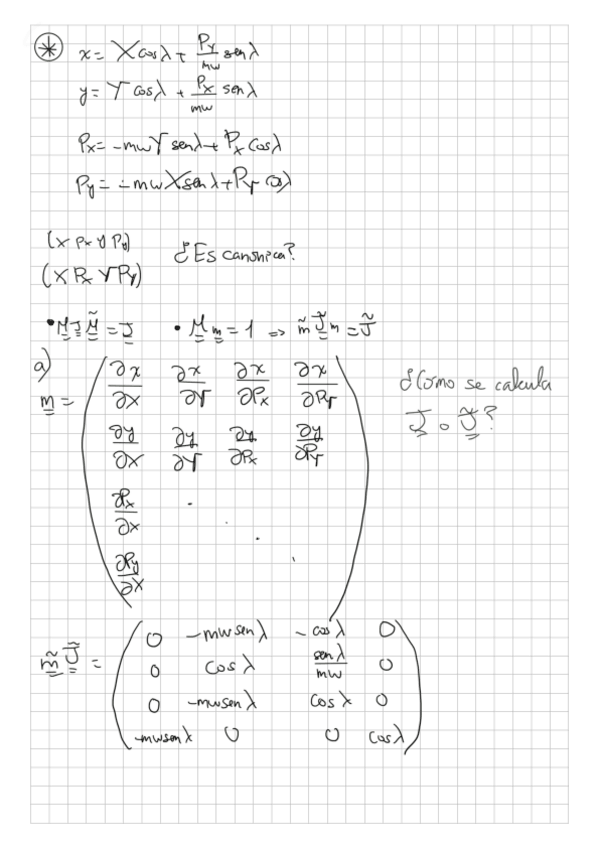 ⊛ x = X cosλ + Py/mw senλ
y = Y cosλ + Px/mw senλ
Px = -mwY senλ + Px cosλ
Py = -mwX senλ + PY cosλ
(x Px y Py)
(X Px Y Py) ¿Es canónica?
• M J M̃ = J • M m = 1 => m̃ J̃ m = J̃
a)
m = ( ∂x/∂X ∂x/∂Y ∂x/∂Px ∂x/∂PY
∂y/∂X ∂y/∂Y ∂y/∂Px ∂y/∂PY
∂Px/∂X . . .
∂Py/∂X . )
¿Cómo se calcula
J o J̃?
m̃ J̃ = ( 0 -mw senλ -cosλ 0
0 cosλ senλ/mw 0
0 -mw senλ cosλ 0
-mw senλ 0 0 cosλ )